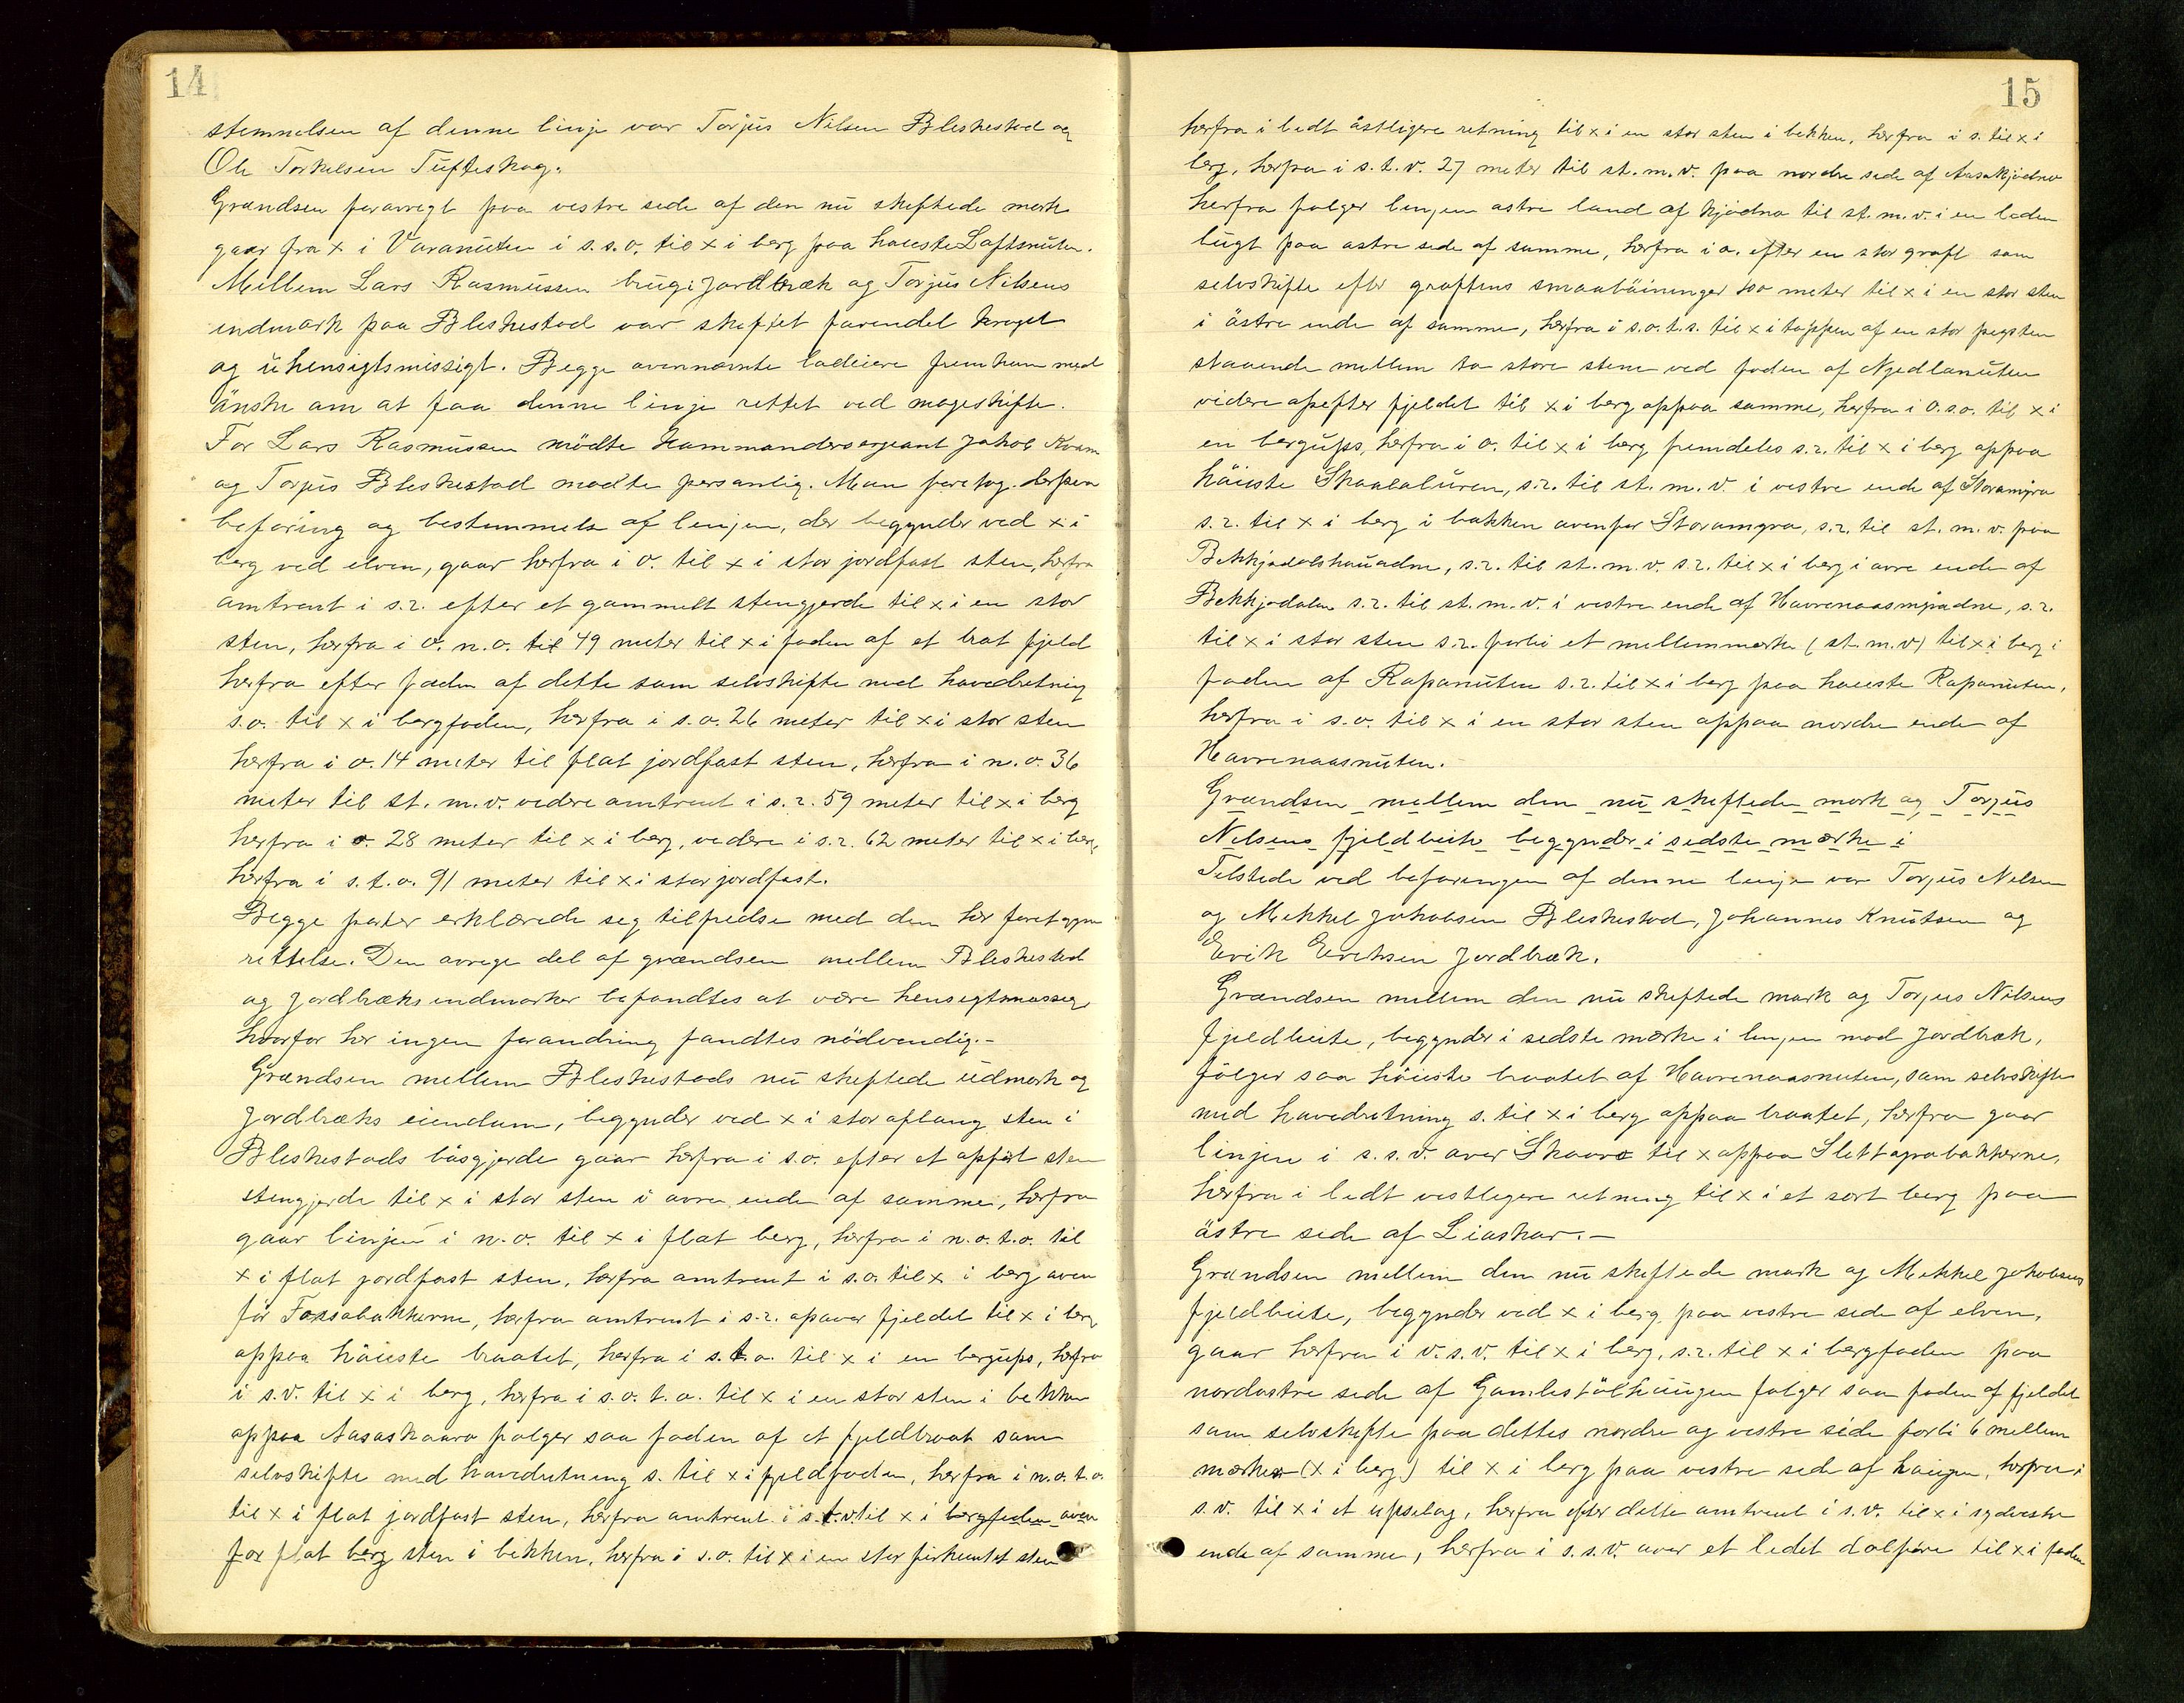 14
stemmelsen af denne linje var Torjus Nilsen Bleskestad og
Ole Torkelsen Tufteskog.
Grændsen foravregt paa vestre side af den nu skiftede mark
gaar fra x i Varanuten i s.s.o. til x i berg paa høieste Loftsnuten.
Mellem Lars Rasmussen brug i Jordbræk og Torjus Nilsens
indmark paa Bleskestad var skiftet forendel kroget
og uhensigtsmissigt. Begge ovennævnte lodeiere fremkom med
ønske om at faa denne linje rettet ved mageskifte.
For Lars Rasmussen mödte kommandersergeant Jakob Kvam
og Torjus Bleskestad mødte personlig. Man foretog derpaa
beføring og bestemmelse af linjen, der begynder ved x i
berg ved elven, gaar herfra i o. til x i stor jordfast sten, herfra
omtrent i s.r. efter et gammelt stengjerde til x i en stor
sten, herfra i o.n.o. til 49 meter til x i foden af et brat fjeld
herfra efter foden af dette som selvskifte med hovedretning
s.o. til x i bergfoden, herfra i s.o. 26 meter til x i stor sten
herfra i o. 14 meter til flat jordfast sten, herfra i n.o. 36
meter til st. m. v. videre omtrent i s.r. 59 meter til x i berg
herfra i o. 28 meter til x i berg, videre i s.r. 62 meter til x i berg,
herfra i s.t.o. 91 meter til x i stor jordfast.
Begge parter erklærede seg tilfredse med den her foretagne
rettelse. Den øvrige del af grændsen mellem Bleskestad
og Jordbræks indmarker befandtes at være hensigtsmæssig,
hvorfor her ingen forandring fandtes nödvendig.-
Grændsen mellem Bleskestads nu skiftede udmark og
Jordbræks eiendom, begynder ved x i stor aflang sten i
Bleskestads bösgjerde gaar herfra i s.o. efter et opført sten
stengjerde til x i stor sten i øvre ende af samme, herfra
gaar linjen i n.o. til x i flat berg, herfra i n.o.t.o. til
x i flat jordfast sten, herfra omtrent i s.o. til x i berg oven
för Fossabakkerne, herfra omtrent i s.r. opover fjeldet til x i berg
oppaa höieste braatet, herfra i s.t.o. til x i en bergups, herfra
i s.v. til x i berg, herfra i s.o.t.o. til x i en stor sten i bekken
oppaa Aasaskaara følger saa foden af et fjeldbraat som
selvskifte med hovedretning s. til x i fjeldfoden, herfra i n.o.t.o.
til x i flat jordfast sten, herfra omtrent i s.t.v. til x i bergfoden oven
for flat berg sten i bekken, herfra i s.o. til x i en stor firkantet sten
15
herfra i lidt östligere retning til x i en stor sten i bekken, herfra i s. til x i
berg, herfra i s.t.v. 27 meter til st. m. v. paa nordre side af Aasakjødna
herfra følger linjen østre land af kjødna til st. m. v. i en liden
bugt paa østre side af samme, herfra i o. efter en stor grøft som
selvskifte efter grøftens smaaböininger 100 meter til x i en stor sten
i östre ende af samme, herfra i s.o.t.s. til x i toppen af en stor pegsten
staaende mellem to store stene ved foden af Njedlanuten
videre opefter fjeldet til x i berg oppaa samme, herfra i o.s.o. til x i
en bergups, herfra i o. til x i berg fremdeles s.r. til x i berg oppaa
höieste Skaalaburen, s.r. til st. m. v. i vestre ende af Storamyra
s.r. til x i berg i bakken ovenfor Storamyra, s.r. til st. m. v. paa
Bekkjadalshauadne, s.r. til st. m. v. s.r. til x i berg i øvre ende af
Bekkjadalen s.r. til st. m. v. i vestre ende af Havrenaasmyradne, s.r.
til x i stor sten s.r. forbi et mellemmerke (st. m. v) til x i berg i
foden af Rapanuten s.r. til x i berg paa høieste Rapanuten,
herfra i s.o. til x i en stor sten oppaa nordre ende af
Havrenaasnuten.
Grændsen mellem den nu skiftede mark og Torjus
Nilsens fjeldbeite begynder i sidste mærke i
Tilstede ved beføringen af denne linje var Torjus Nilsen
og Mikkel Jakobsen Bleskestad, Johannes Knutsen og
Erik Eriksen Jordbræk.
Grændsen mellem den nu skiftede mark og Torjus Nilsens
fjeldbeite, begynder i sidste mærke i linjen mod Jordbræk,
följer saa höieste braatet af Havrenaasnuten, som selvskifte
med hovedretning s. til x i berg oppaa braatet, herfra gaar
linjen i s.s.v. over Skaaro til x oppaa Slettaprabakkerne,
herfra i lidt vestligere retning til x i et sort berg paa
östre side af Liaskar.-
Grændsen mellem den nu skiftede mark og Mikkel Jakobsens
fjeldbeite, begynder ved x i berg paa vestre side af elven,
gaar herfra i v.s.v. til x i berg, s.r. til x i bergfoden paa
nordøstre side af Gamlestölhaugen følger saa foden af fjeldet
som selvskifte paa dettes nordre og vestre side forbi 6 mellem
mærker (x i berg) til x i berg paa vestre side af haugen, herfra i
s.v. til x i et upselag, herfra efter dette omtrent i s.v. til x i sydvestre
ende af samme, herfra i s.s.v. over et lidet dalføre til x i foden